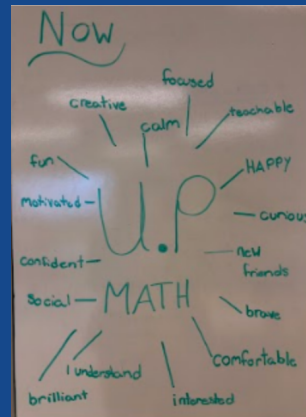 Now
focused
creative
teachable
calm
fun
HAPPY
motivated
U.P
curious
confident
new
friends
social
MATH
brave
I understand
comfortable
brilliant
interested